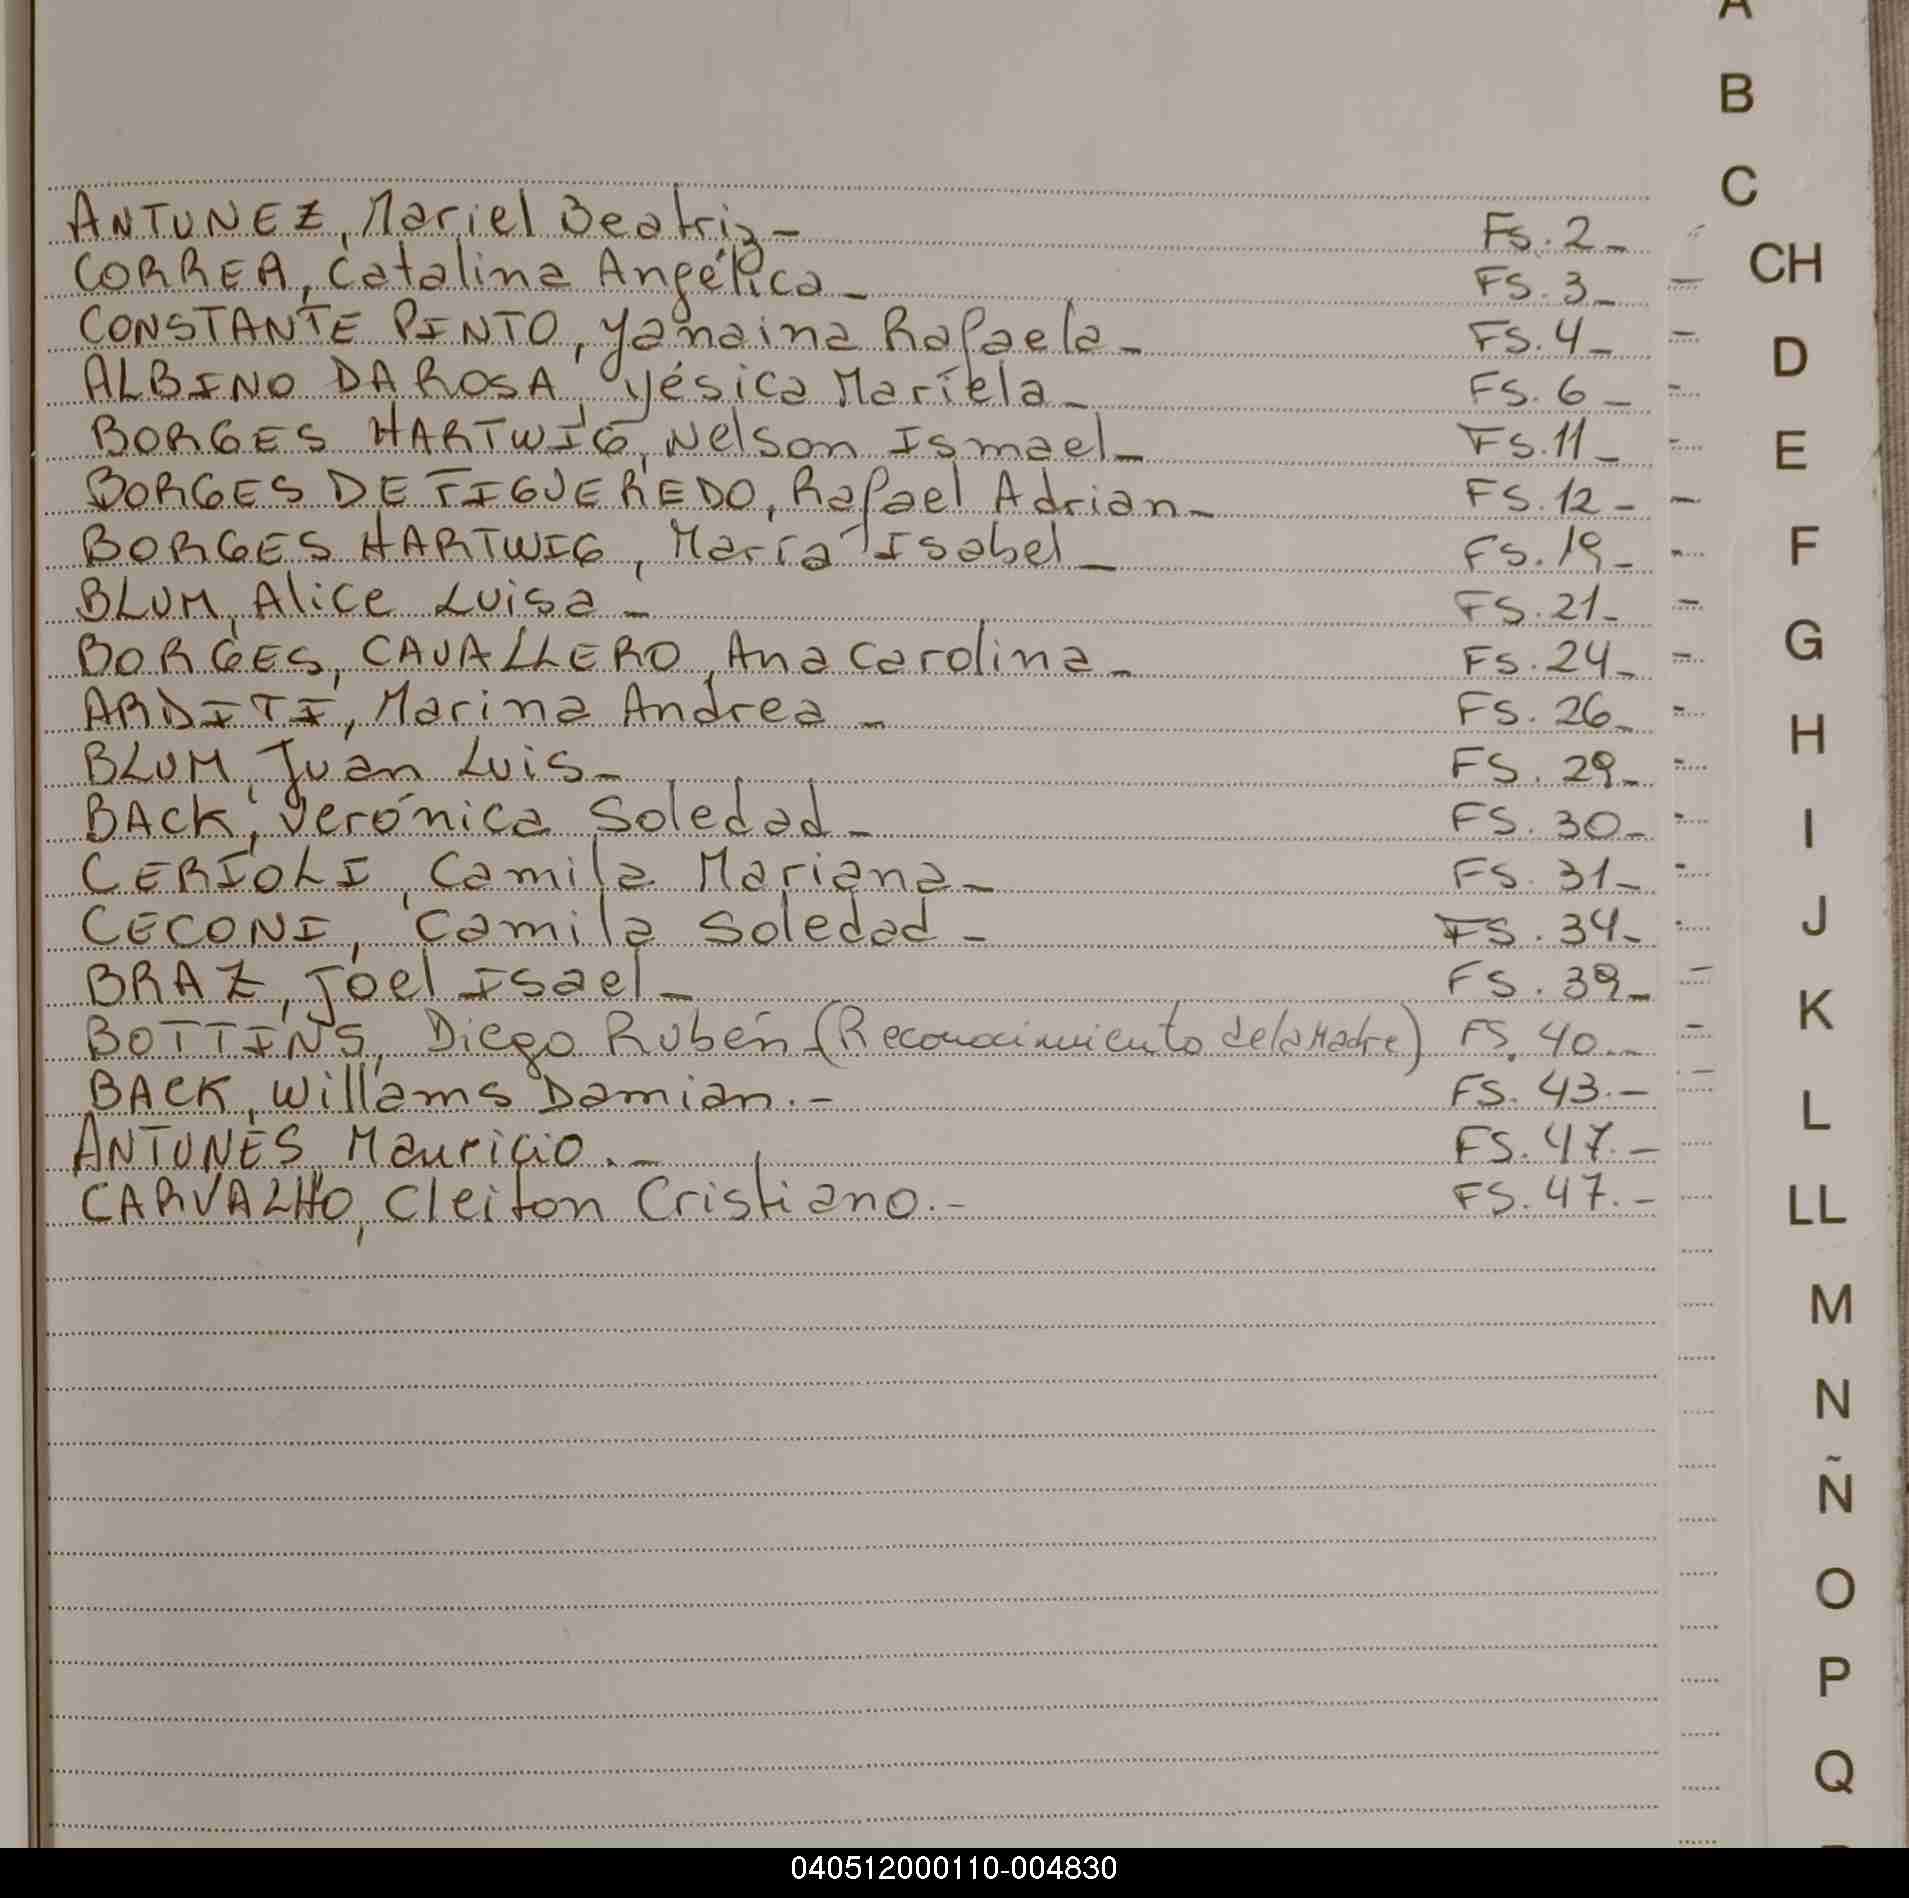 ANTUNEZ, Mariel Beatriz - Fs. 2 -
CORREA, Catalina Angélica - Fs. 3 -
CONSTANTE PINTO, Yanaina Rafaela - Fs. 4 -
ALBINO DA ROSA, Yésica Mariela - Fs. 6 -
BORGES HARTWIG, Nelson Ismael - Fs. 11 -
BORGES DE FIGUEREDO, Rafael Adrian - Fs. 12 -
BORGES HARTWIG, María Isabel - Fs. 19 -
BLUM, Alice Luisa - Fs. 21 -
BORGES, CAVALLERO, Ana Carolina - Fs. 24 -
ARDITI, Marina Andrea - Fs. 26 -
BLUM, Juan Luis - Fs. 29 -
BACK, Verónica Soledad - Fs. 30 -
CERIOLI, Camila Mariana - Fs. 31 -
CECONI, Camila Soledad - Fs. 34 -
BRAZ, Joel Isael - Fs. 39 -
BOTTINS, Diego Rubén (Reconocimiento de la Madre) FS. 40.-
BACK, Willams Damian.- FS. 43.-
ANTUNES, Mauricio.- FS. 47.-
CARVALHO, Cleiton Cristiano.- FS. 47.-
A
B
C
CH
D
E
F
G
H
I
J
K
L
LL
M
N
Ñ
O
P
Q
040512000110-004830